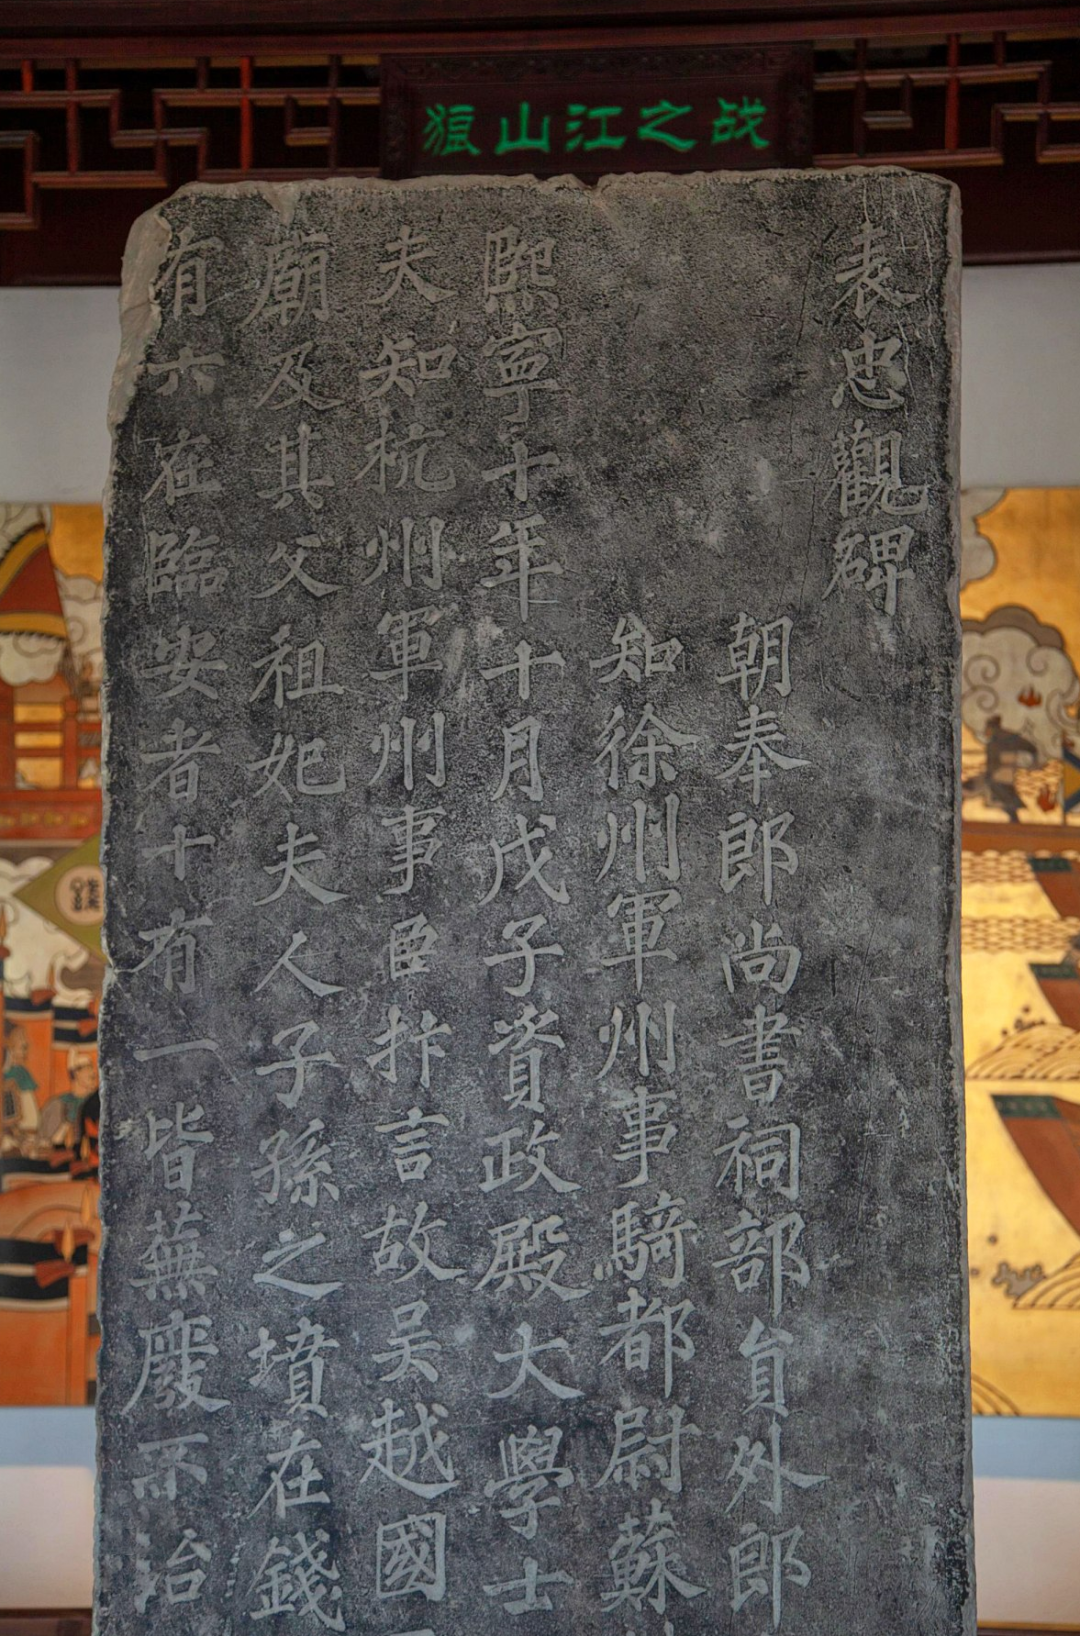 狼山江之战
表忠觀碑
朝奉郎尚書祠部員外郎
知徐州軍州事騎都尉蘇
熙寧十年十月戊子資政殿大學士
夫知杭州軍州事臣抃言故吴越國
廟及其父祖妃夫人子孫之墳在錢
有六在臨安者十有一皆蕪廢不治